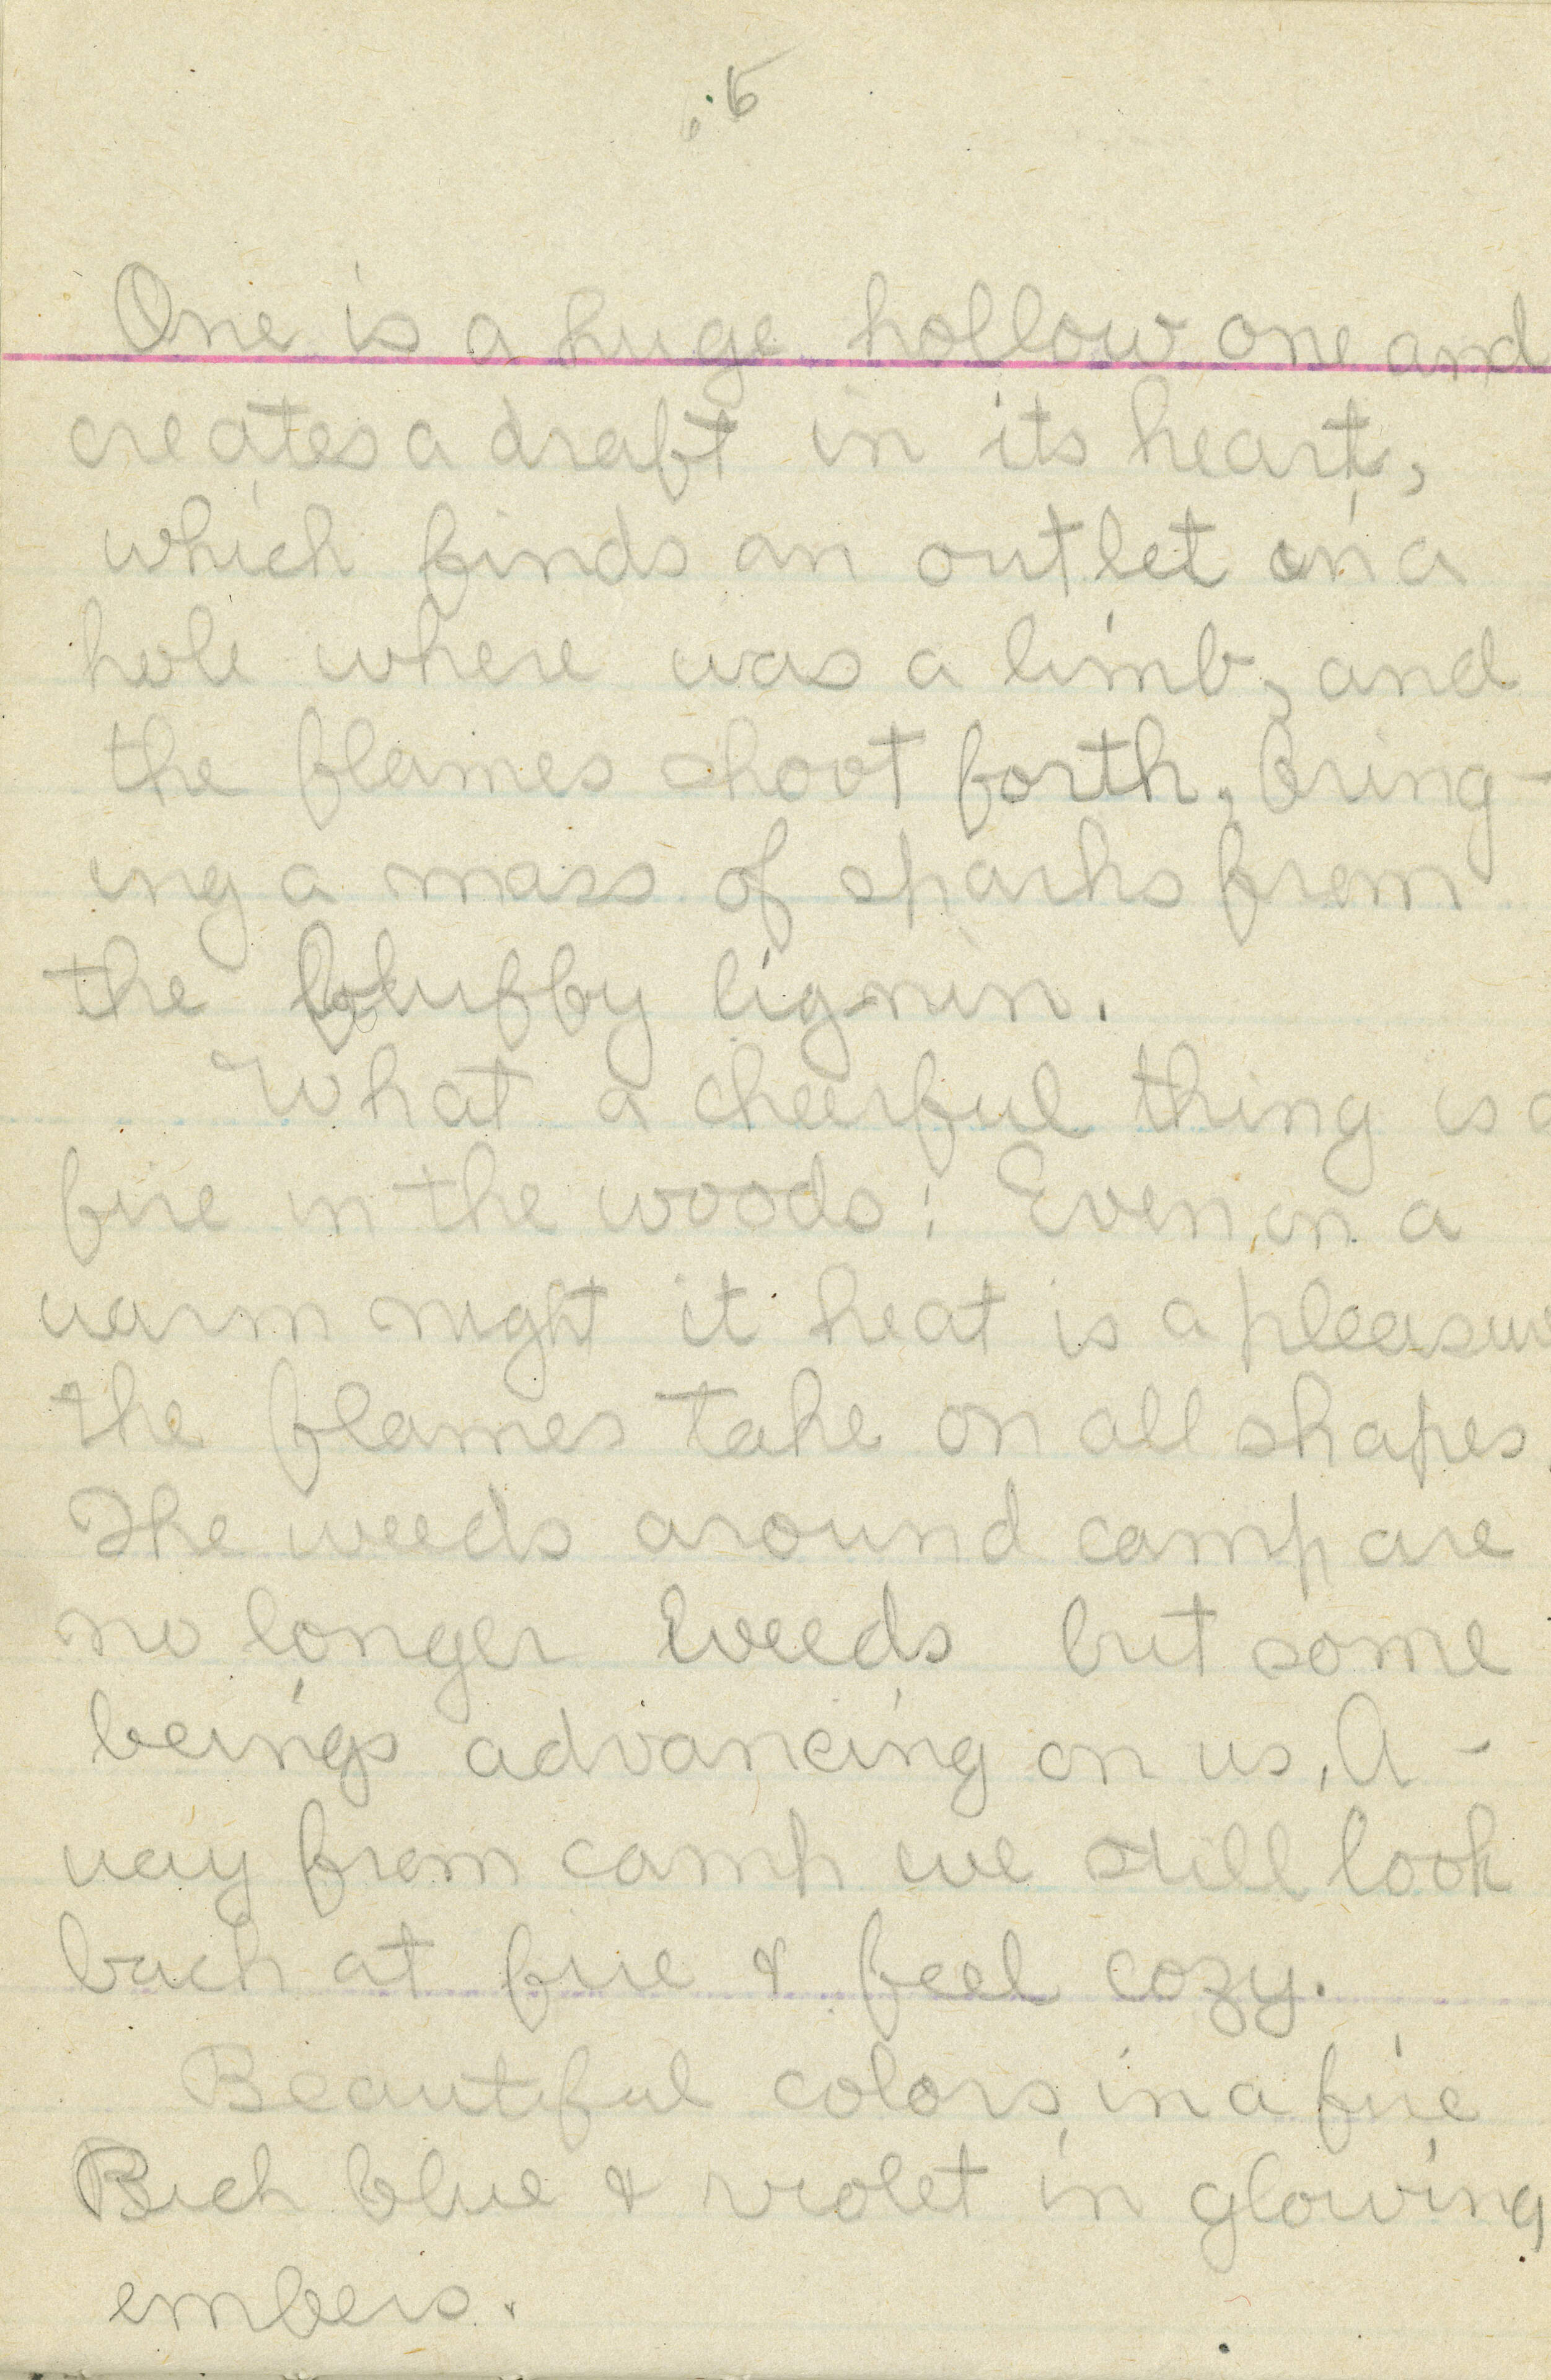 One is a huge hollow one and
creates a draft in its heart,
which finds an outlet in a
hole where was a limb, and
the flames shoot forth, bring-
ing a mass of sparks from
the fluffy lignin.
What a cheerful thing is a
fire in the woods! Even on a
warm night it heat is a pleasure
the flames take on all shapes.
The weeds around camp are
no longer weeds but some
beings advancing on us. A-
way from camp we still look
back at fire & feel cozy.
Beautiful colors in a fire
Rich blue & violet in glowing
embers.